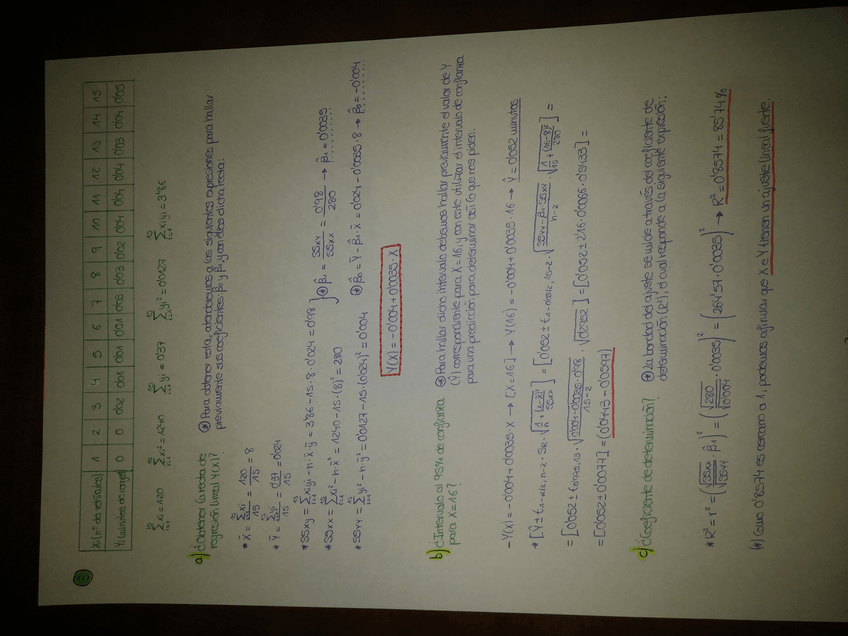 Xi (nº de vehículos) 1 2 3 4 5 6 7 8 9 10 11 12 13 14 15
Yi (minutos de carga) 0 0 0'02 0'01 0'01 0'01 0'03 0'03 0'02 0'04 0'04 0'04 0'03 0'04 0'05
Σxi = 120 Σxi² = 1240 Σyi = 0'37 Σyi² = 0'0127 Σxiyi = 3'86
a) ¿Obtener la recta de
regresión lineal Y(X)?
* Para obtener esta, atendemos a las siguientes expresiones para hallar
previamente sus coeficientes β0 y β1 y con ellos dicha recta:
* X̄ = Σxi / 15 = 120 / 15 = 8
* Ȳ = Σyi / 15 = 0'37 / 15 = 0'024
* SSxy = Σxiyi - n·x̄·ȳ = 3'86 - 15·8·0'024 = 0'98
* SSxx = Σxi² - n·x̄² = 1240 - 15·(8)² = 280
* SSyy = Σyi² - n·ȳ² = 0'0127 - 15·(0'024)² = 0'004
* β̂1 = SSxy / SSxx = 0'98 / 280 → β̂1 = 0'0035
* β̂0 = Ȳ - β̂1·X̄ = 0'024 - 0'0035·8 → β̂0 = -0'004
Y(X) = -0'004 + 0'0035·X
b) ¿Intervalo al 95% de confianza
para X=16?
* Para hallar dicho intervalo debemos hallar previamente el valor de Y
(Ŷ) correspondiente para X=16, y con este utilizar el intervalo de confianza
para una predicción para determinar así lo que nos piden:
- Y(X) = -0'004 + 0'0035·X → [X=16] → Y(16) = -0'004 + 0'0035·16 → Ŷ = 0'052 minutos
* [Ŷ ± t1-α/2, n-2 · SR · √(1/n + (x-x̄)²/SSxx)] = [0'052 ± t1-0'05/2, 15-2 · √((SSyy - β1·SSxy)/(n-2)) · √(1/15 + (16-8)²/280)] =
= [0'052 ± t0'975, 13 · √((0'004 - 0'0035·0'98)/(15-2)) · √0'2952] = [0'052 ± 2'16·0'0066·0'5433] =
= [0'052 ± 0'0077] = (0'0443 - 0'0597)
c) ¿Coeficiente de determinación?
* La bondad del ajuste se mide a través del coeficiente de
determinación (R²), el cual responde a la siguiente expresión:
* R² = r² = (√SSxx/√SSyy · β̂1)² = (√280/√0'004 · 0'0035)² = (264'57·0'0035)² → R² = 0'8574 = 85'74%
(*) Como 0'8574 es cercano a 1, podemos afirmar que X e Y tienen un ajuste lineal fuerte.